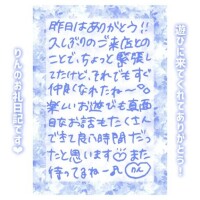 遊びに来てくれてありがとう!
昨日はありがとう!!
久しぶりのご来店との
ことで、ちょっと緊張し
てたけど、それでもすぐ
仲良くなれたね〜
楽しいお遊びも真面
目なお話もたくさん
できて良い時間だっ
たと思います♡また
待ってるね〜♪ りん
りんのお礼日記です♥